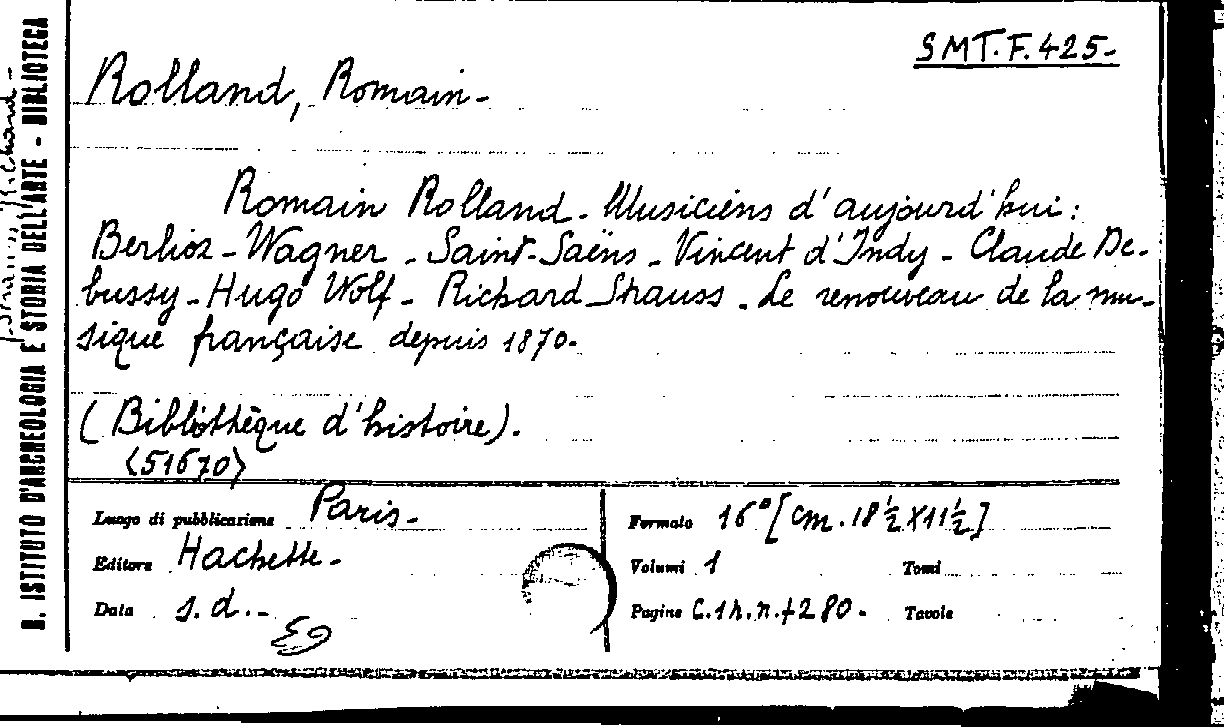 SMT.F.425-
Rolland, Romain-
Romain Rolland. Musiciens d'aujourd'hui:
Berlioz - Wagner - Saint-Saëns - Vincent d'Indy - Claude De-
bussy - Hugo Wolf - Richard Strauss - Le renouveau de la mu-
sique française depuis 1870-
(Bibliothèque d'histoire).
<51670>
Luogo di pubblicazione Paris-
Editore Hachette-
Data s.d.-
Formato 16° [cm. 18½ X 11½]
Volumi 1 Tomi
Pagine C.1 n.n.+280- Tavole
R. ISTITUTO D'ARCHEOLOGIA E STORIA DELL'ARTE - BIBLIOTECA